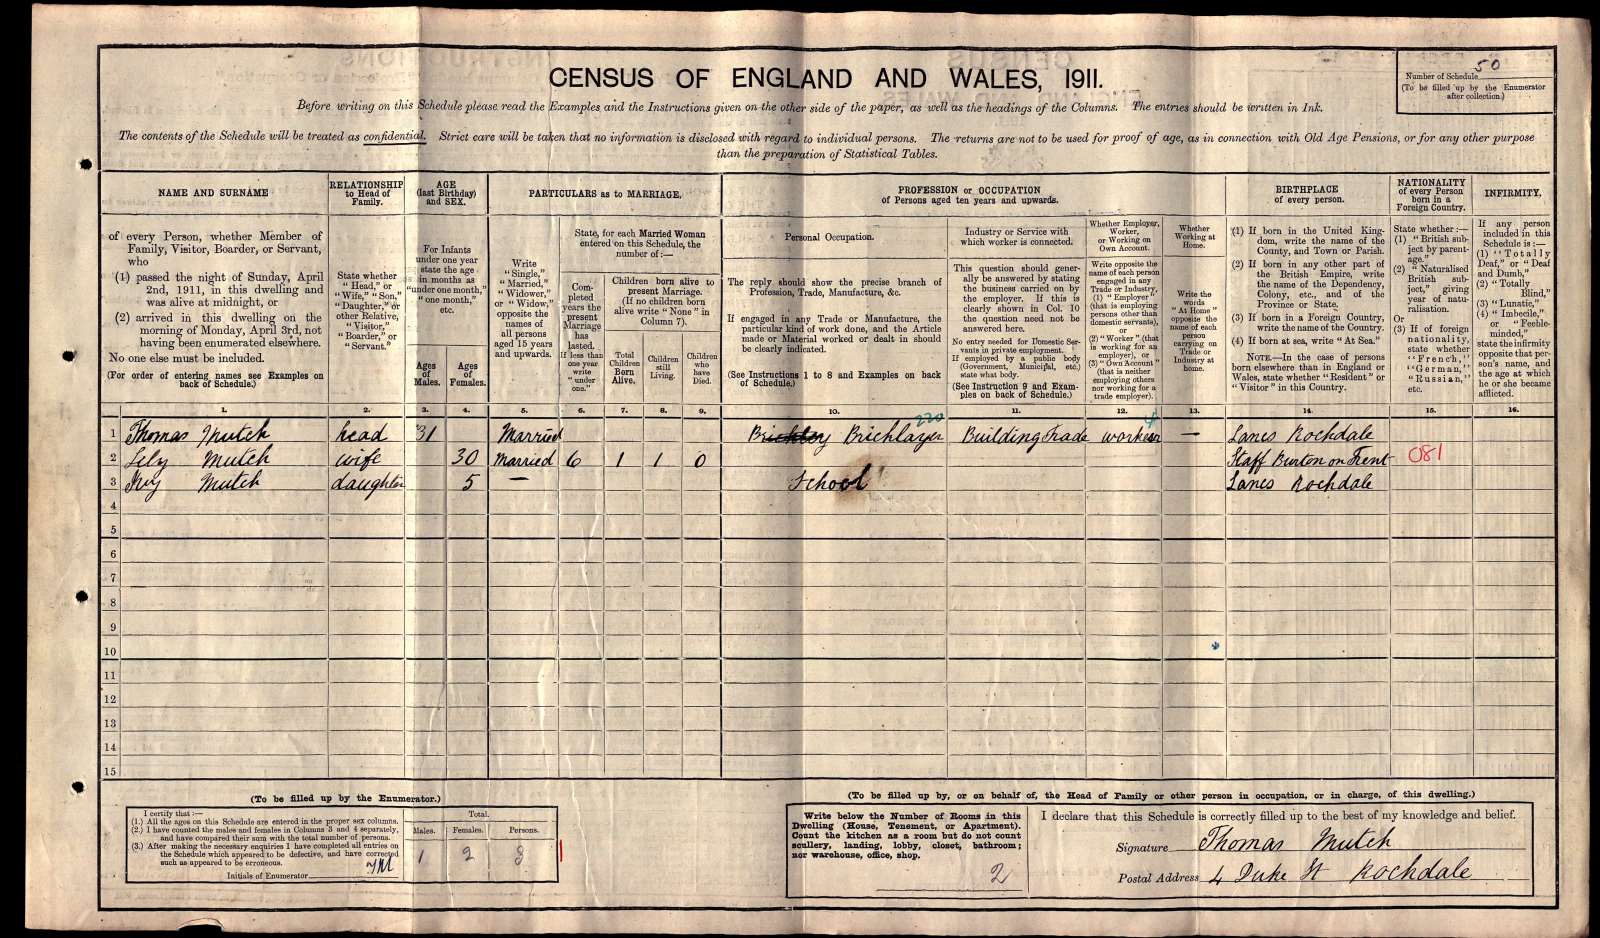 CENSUS OF ENGLAND AND WALES, 1911.
Number of Schedule 50
(To be filled up by the Enumerator
after collection.)
Before writing on this Schedule please read the Examples and the Instructions given on the other side of the paper, as well as the headings of the Columns. The entries should be written in Ink.
The contents of the Schedule will be treated as confidential. Strict care will be taken that no information is disclosed with regard to individual persons. The returns are not to be used for proof of age, as in connection with Old Age Pensions, or for any other purpose
than the preparation of Statistical Tables.
NAME AND SURNAME
of every Person, whether Member of
Family, Visitor, Boarder, or Servant,
who
(1) passed the night of Sunday, April
2nd, 1911, in this dwelling and
was alive at midnight, or
(2) arrived in this dwelling on the
morning of Monday, April 3rd, not
having been enumerated elsewhere.
No one else must be included.
(For order of entering names see Examples on
back of Schedule.)
RELATIONSHIP
to Head of
Family.
State whether
"Head," or
"Wife," "Son,"
"Daughter," or
other Relative,
"Visitor,"
"Boarder," or
"Servant."
AGE
(last Birthday)
and SEX.
For Infants
under one year
state the age
in months as
"under one month,"
"one month,"
etc.
Ages
of
Males.
Ages
of
Females.
PARTICULARS as to MARRIAGE.
Write
"Single,"
"Married,"
"Widower,"
or "Widow,"
opposite the
names of
all persons
aged 15 years
and upwards.
State, for each Married Woman
entered on this Schedule, the
number of:—
Com-
pleted
years the
present
Marriage
has
lasted.
If less than
one year
write
"under
one."
Children born alive to
present Marriage.
(If no children born
alive write "None" in
Column 7).
Total
Children
Born
Alive.
Children
still
Living.
Children
who
have
Died.
PROFESSION or OCCUPATION
of Persons aged ten years and upwards.
Personal Occupation.
The reply should show the precise branch of
Profession, Trade, Manufacture, &c.
If engaged in any Trade or Manufacture, the
particular kind of work done, and the Article
made or Material worked or dealt in should
be clearly indicated.
(See Instructions 1 to 8 and Examples on back
of Schedule.)
Industry or Service with
which worker is connected.
This question should gener-
ally be answered by stating
the business carried on by
the employer. If this is
clearly shown in Col. 10
the question need not be
answered here.
No entry needed for Domestic Ser-
vants in private employment.
If employed by a public body
(Government, Municipal, etc.)
state what body.
(See Instruction 9 and Exam-
ples on back of Schedule.)
Whether Employer,
Worker,
or Working on
Own Account.
Write opposite the
name of each person
engaged in any
Trade or Industry,
(1) "Employer"
(that is employing
persons other than
domestic servants),
or
(2) "Worker" (that
is working for an
employer), or
(3) "Own Account"
(that is neither
employing others
nor working for a
trade employer).
Whether
Working at
Home.
Write the
words
"At Home"
opposite the
name of each
person
carrying on
Trade or
Industry at
home.
BIRTHPLACE
of every person.
(1) If born in the United King-
dom, write the name of the
County, and Town or Parish.
(2) If born in any other part of
the British Empire, write
the name of the Dependency,
Colony, etc., and of the
Province or State.
(3) If born in a Foreign Country,
write the name of the Country.
(4) If born at sea, write "At Sea."
NOTE.—In the case of persons
born elsewhere than in England or
Wales, state whether "Resident" or
"Visitor" in this Country.
NATIONALITY
of every Person
born in a
Foreign Country.
State whether:—
(1) "British sub-
ject by parent-
age."
(2) "Naturalised
British sub-
ject," giving
year of natu-
ralisation.
Or
(3) If of foreign
nationality,
state whether
"French,"
"German,"
"Russian,"
etc.
INFIRMITY.
If any person
included in this
Schedule is:—
(1) "Totally
Deaf," or "Deaf
and Dumb,"
(2) "Totally
Blind,"
(3) "Lunatic,"
(4) "Imbecile,"
or "Feeble-
minded,"
state the infirmity
opposite that per-
son's name, and
the age at which
he or she became
afflicted.
1. 2. 3. 4. 5. 6. 7. 8. 9. 10. 11. 12. 13. 14. 15. 16.
220 4
1 Thomas Mutch head 31 Married Bricklayer Building Trade worker — Lancs Rochdale
2 Lily Mutch wife 30 Married 6 1 1 0 Staff Burton on Trent 081
3 Ivy Mutch daughter 5 — School Lancs Rochdale
4
5
6
7
8
9
10
11
12
13
14
15
(To be filled up by the Enumerator.)
I certify that:—
(1.) All the ages on this Schedule are entered in the proper sex columns.
(2.) I have counted the males and females in Columns 3 and 4 separately,
and have compared their sum with the total number of persons.
(3.) After making the necessary enquiries I have completed all entries on
the Schedule which appeared to be defective, and have corrected
such as appeared to be erroneous.
Initials of Enumerator
Total.
Males. Females. Persons.
1 2 3
(To be filled up by, or on behalf of, the Head of Family or other person in occupation, or in charge, of this dwelling.)
Write below the Number of Rooms in this
Dwelling (House, Tenement, or Apartment).
Count the kitchen as a room but do not count
scullery, landing, lobby, closet, bathroom;
nor warehouse, office, shop.
2
I declare that this Schedule is correctly filled up to the best of my knowledge and belief.
Signature Thomas Mutch
Postal Address 4 Duke St Rochdale